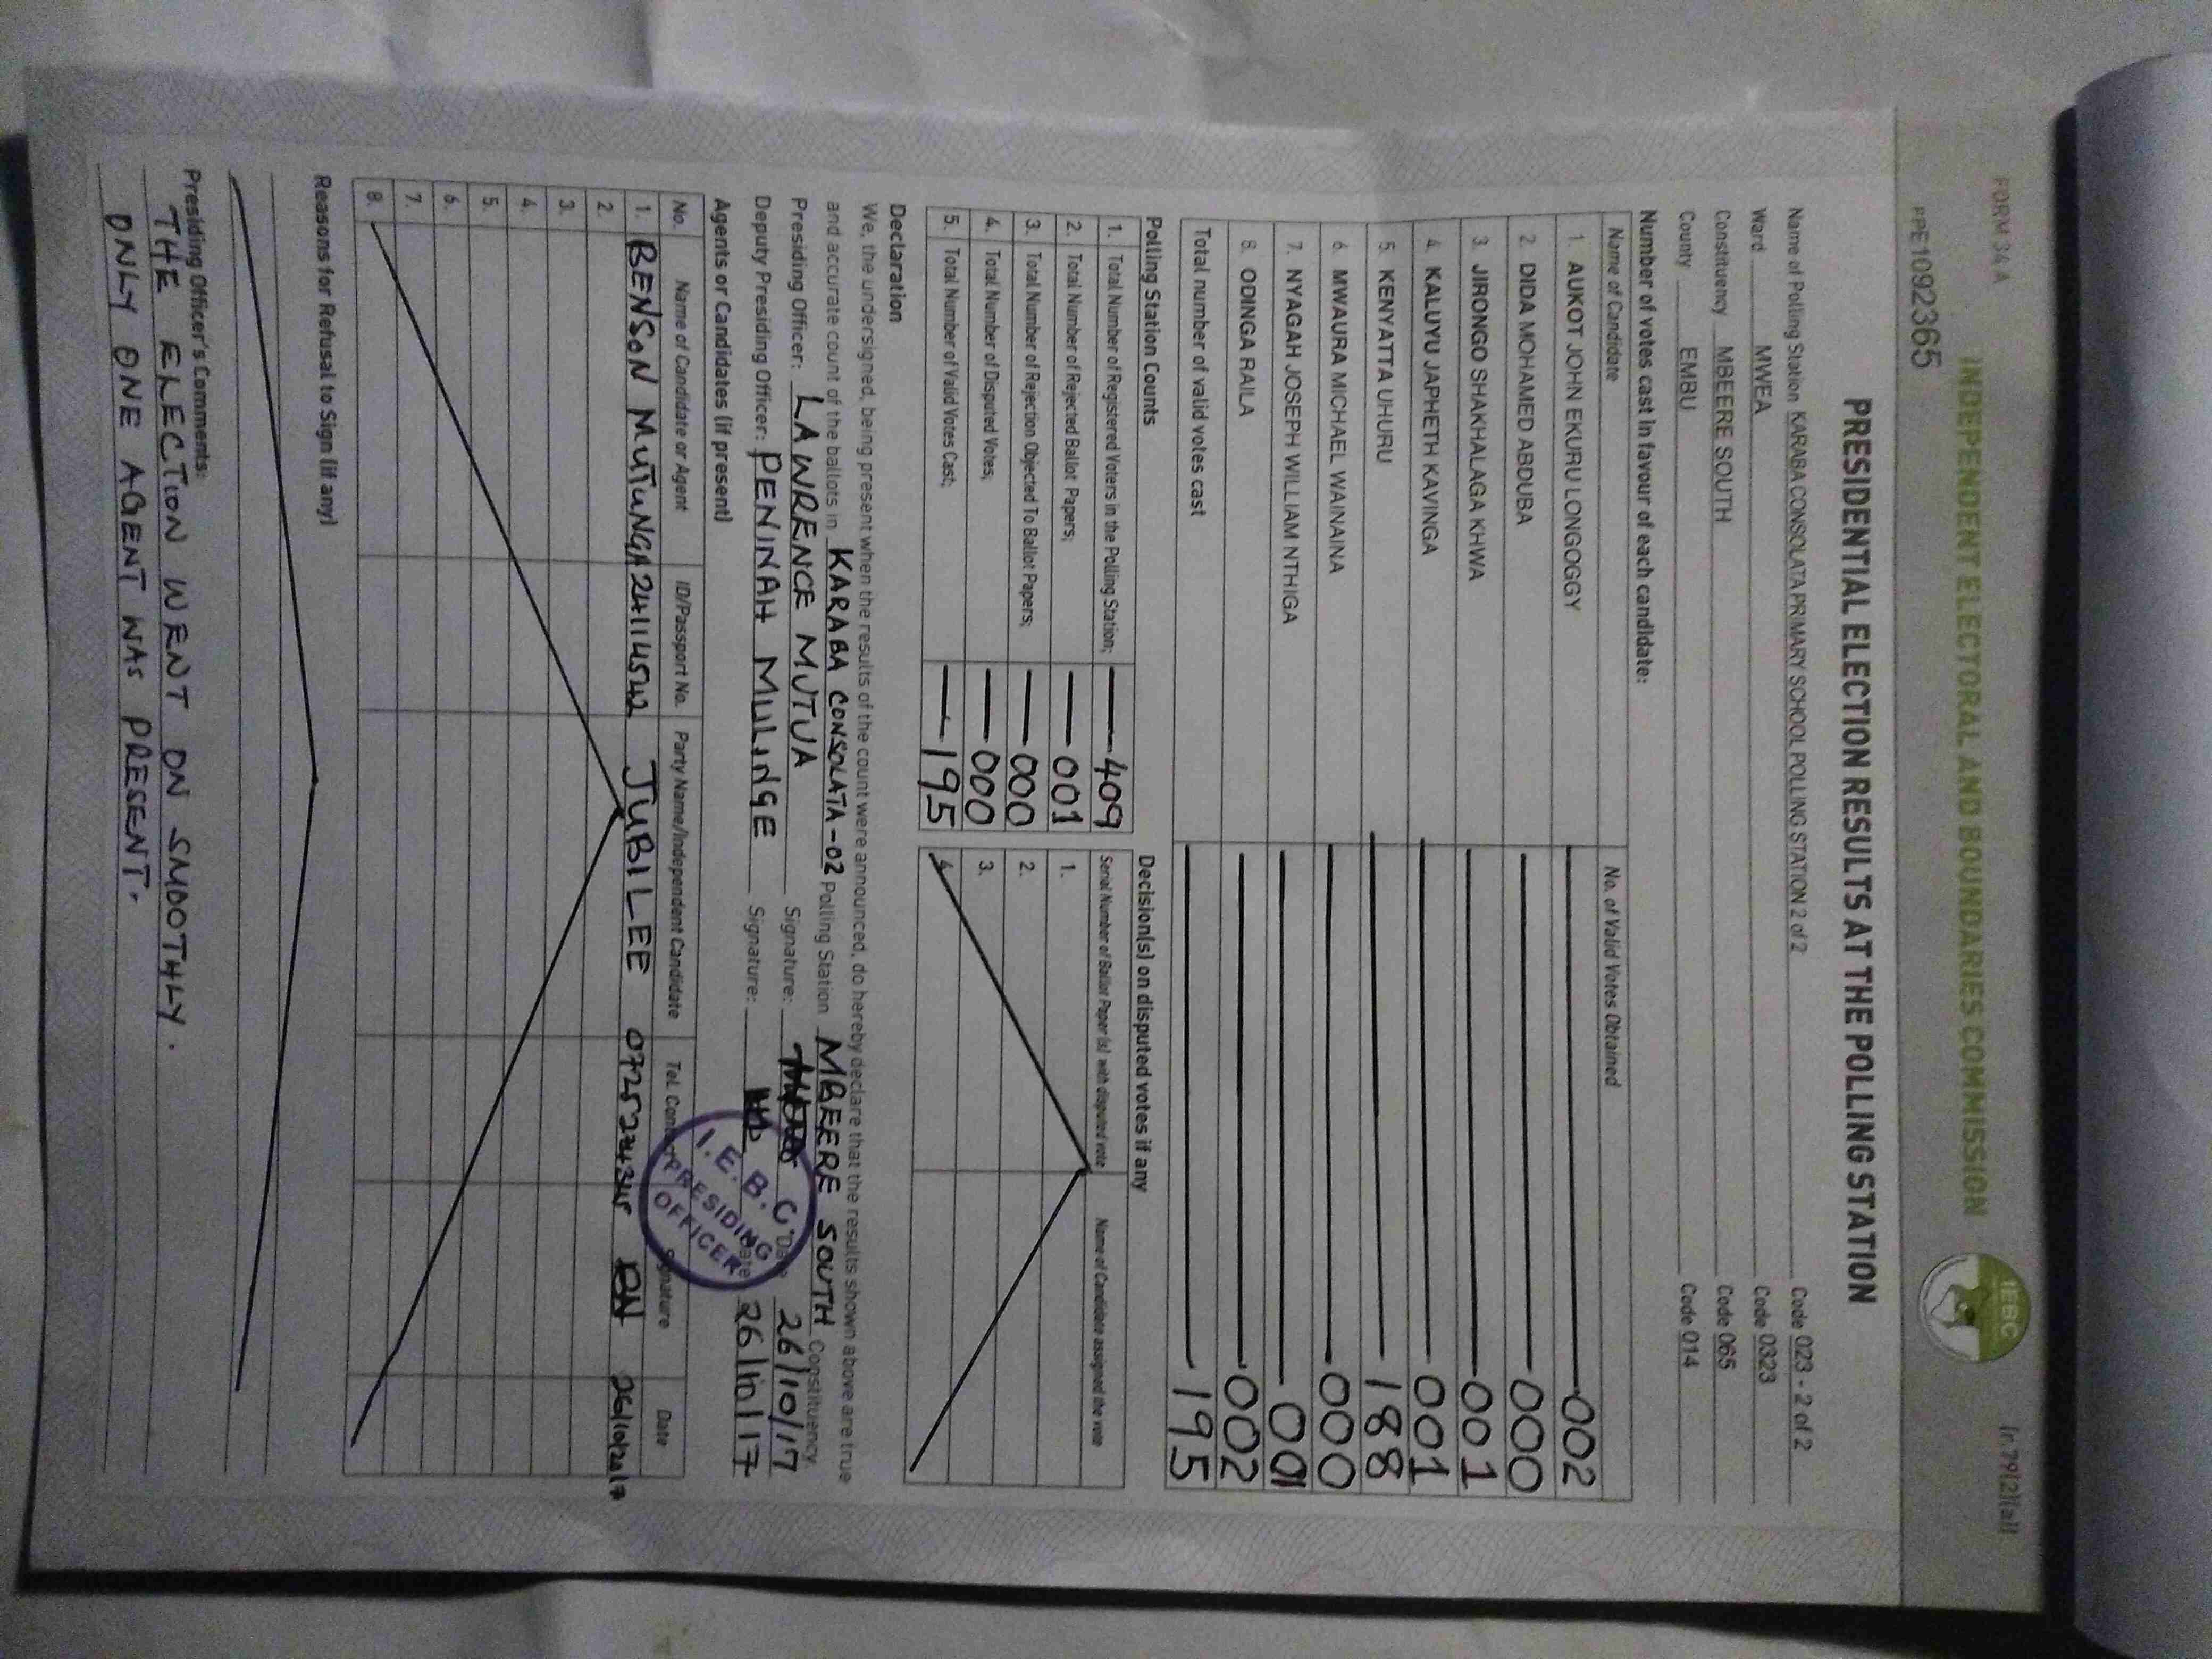 FORM 34 A
(r.79(2)(a))
INDEPENDENT ELECTORAL AND BOUNDARIES COMMISSION
IEBC
PPE1092365
PRESIDENTIAL ELECTION RESULTS AT THE POLLING STATION
Name of Polling Station KARABA CONSOLATA PRIMARY SCHOOL POLLING STATION 2 of 2 Code 023 - 2 of 2
Ward MWEA Code 0323
Constituency MBEERE SOUTH Code 065
County EMBU Code 014
Number of votes cast in favour of each candidate:
Name of Candidate No. of Valid Votes Obtained
1. AUKOT JOHN EKURU LONGOGGY 002
2. DIDA MOHAMED ABDUBA 000
3. JIRONGO SHAKHALAGA KHWA 001
4. KALUYU JAPHETH KAVINGA 001
5. KENYATTA UHURU 188
6. MWAURA MICHAEL WAINAINA 000
7. NYAGAH JOSEPH WILLIAM NTHIGA 001
8. ODINGA RAILA 002
Total number of valid votes cast 195
Polling Station Counts
1. Total Number of Registered Voters in the Polling Station; 409
2. Total Number of Rejected Ballot Papers; 001
3. Total Number of Rejection Objected To Ballot Papers; 000
4. Total Number of Disputed Votes; 000
5. Total Number of Valid Votes Cast; 195
Decision(s) on disputed votes if any
Serial Number of Ballot Paper (s) with disputed vote Name of Candidate assigned the vote
1.
2.
3.
4.
Declaration
We, the undersigned, being present when the results of the count were announced, do hereby declare that the results shown above are true
and accurate count of the ballots in KARABA CONSOLATA-02 Polling Station MBEERE SOUTH Constituency.
Presiding Officer: LAWRENCE MUTUA Signature: Date 26/10/17
Deputy Presiding Officer: PENINAH MULINGE Signature: Date 26/10/17
I.E.B.C.
PRESIDING
OFFICER
Agents or Candidates (if present)
No. Name of Candidate or Agent ID/Passport No. Party Name/Independent Candidate Tel. Contact Signature Date
1. BENSON MUTUNGA JUBILEE 26/10/2017
2.
3.
4.
5.
6.
7.
8.
Reasons for Refusal to Sign (if any)
Presiding Officer's Comments:
THE ELECTION WENT ON SMOOTHLY.
ONLY ONE AGENT WAS PRESENT.